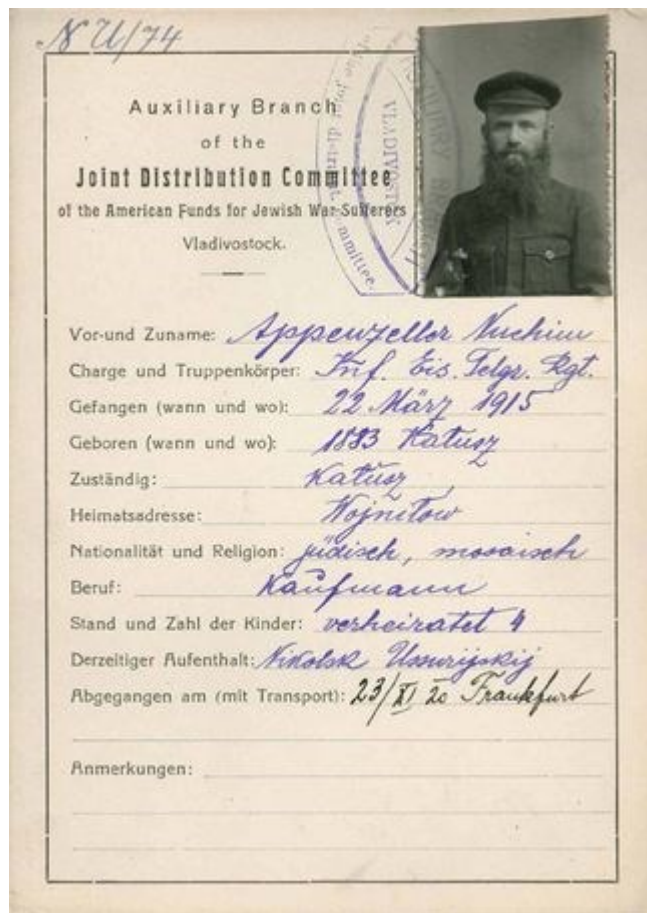 N U/74
Auxiliary Branch
of the
Joint Distribution Committee
of the American Funds for Jewish War Sufferers
Vladivostock.
VLADIVOSTOK
Committee.
Vor-und Zuname: Appenzeller Nuchim
Charge und Truppenkörper: Inf. Eis. Telgr. Rgt.
Gefangen (wann und wo): 22 März 1915
Geboren (wann und wo): 1883 Katusz
Zuständig: Katusz
Heimatsadresse: Wojnilow
Nationalität und Religion: jüdisch, mosaisch
Beruf: Kaufmann
Stand und Zahl der Kinder: verheiratet 4
Derzeitiger Aufenthalt: Nikolsk Ussurijskij
Abgegangen am (mit Transport): 23/XI 20 Frankfurt
Anmerkungen: